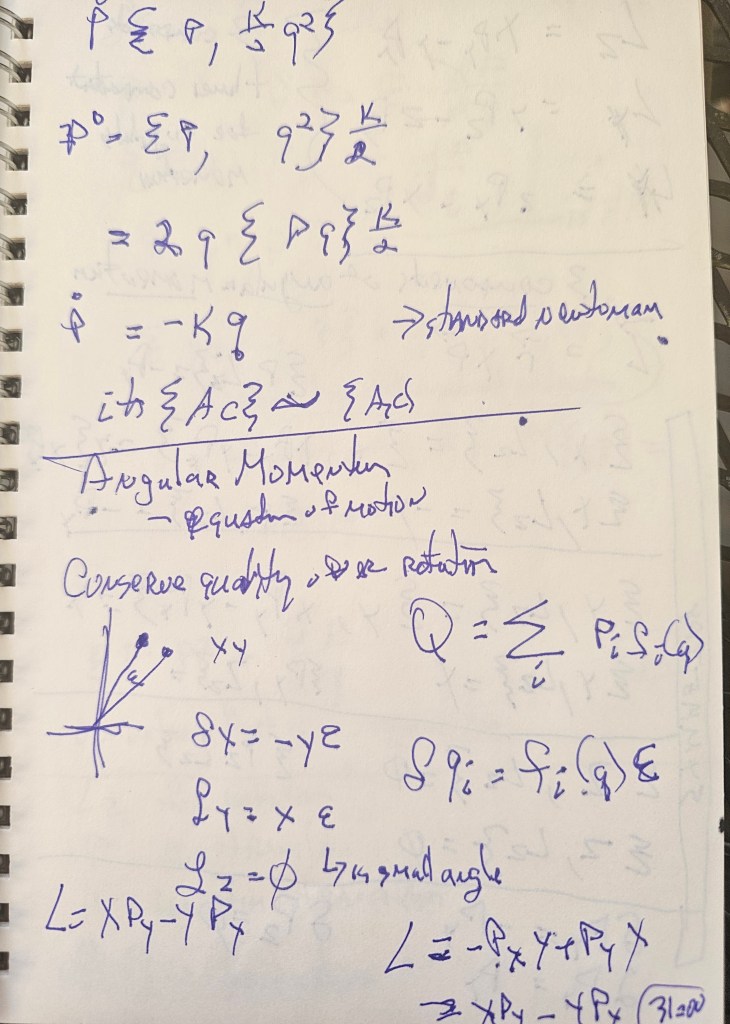 Ṗ {P, K/2 q²}
P° = {P, q²} K/2
= 2q {P q} K/2
Ṗ = -Kq → standard Newtonian
its {A C} ~ {A,C}
Angular Momentum
- Equation of motion
Conserve quality, rotation
XY
Q = Σ_i P_i f_i(q)
δX = -Yε
δq_i = f_i(q) ε
δY = X ε
δz = ∅ ↳ small angle
L = X P_Y - Y P_X
L = -P_X Y + P_Y X
= XP_Y - YP_X 31:00